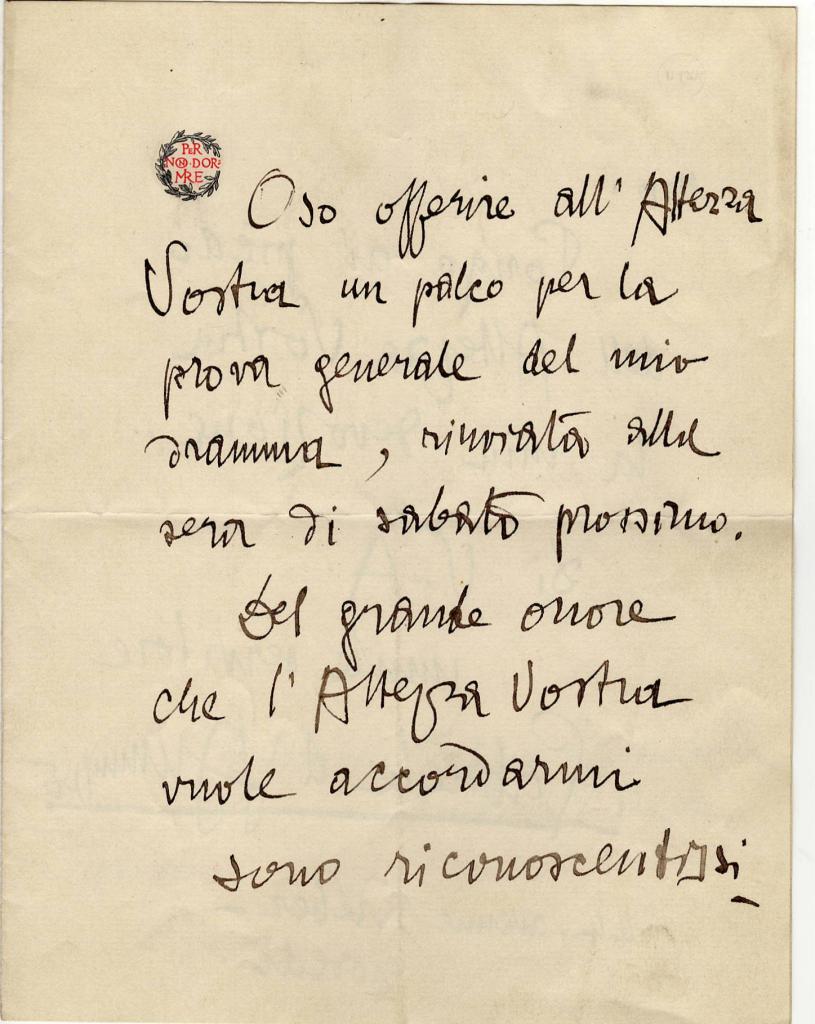 PER
NON DOR
MIRE
Oso offerire all' Altezza
Vostra un palco per la
prova generale del mio
dramma, rinviata alla
sera di sabato prossimo.
Del grande onore
che l' Altezza Vostra
vuole accordarmi
sono riconoscentissi-